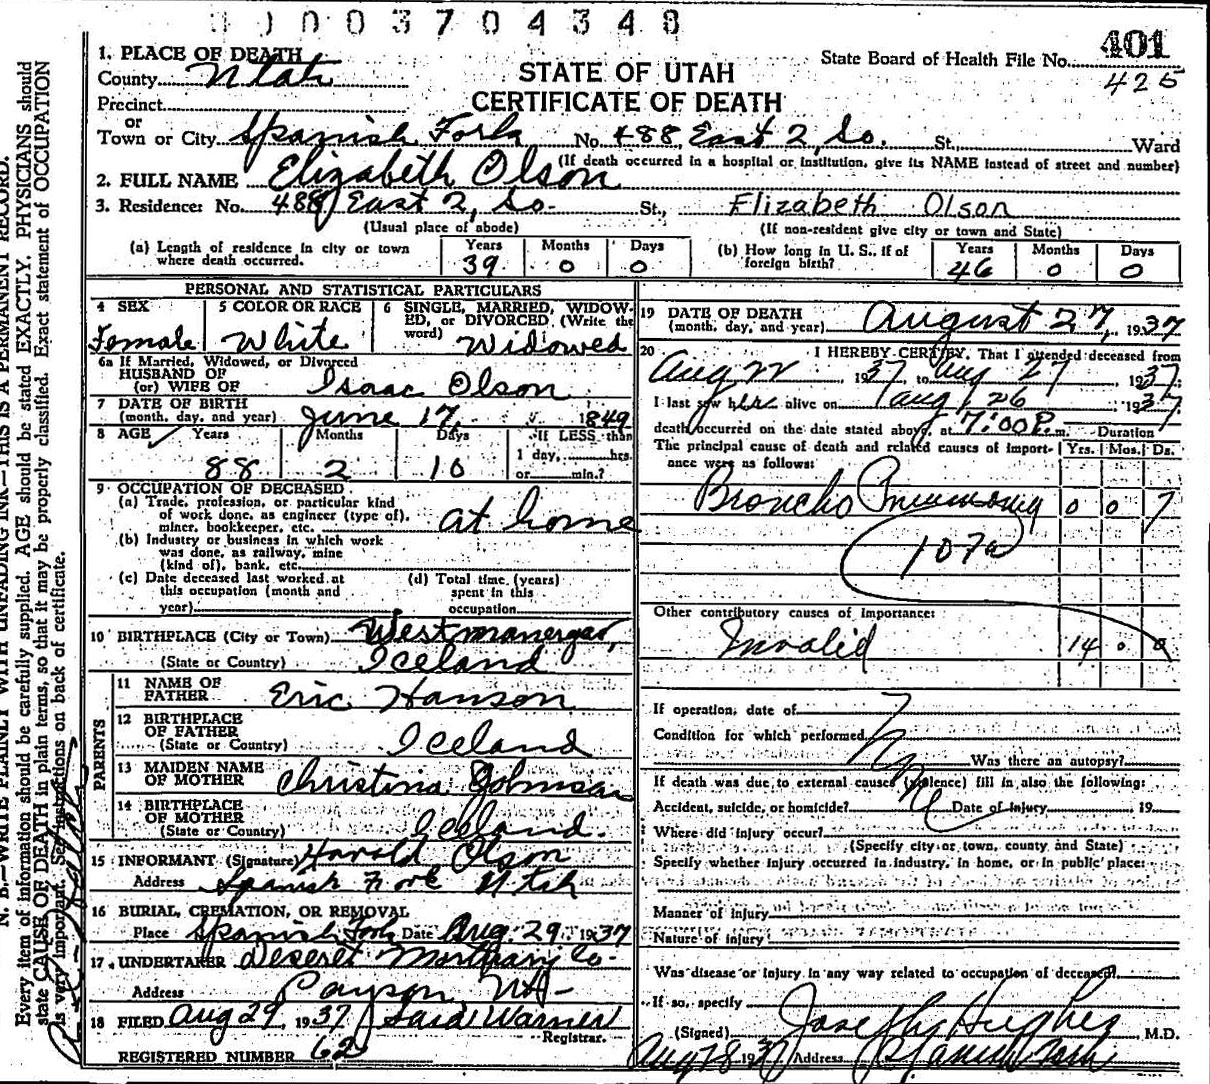 0 0 0 3 7 0 4 3 4 8
401
State Board of Health File No.
425
STATE OF UTAH
CERTIFICATE OF DEATH
1. PLACE OF DEATH
County Utah
Precinct
or
Town or City Spanish Fork No. 488 East 2, So. St., Ward
(If death occurred in a hospital or institution, give its NAME instead of street and number)
2. FULL NAME Elizabeth Olson
3. Residence: No. 488 East 2, So. St., Elizabeth Olson
(Usual place of abode) (If non-resident give city or town and State)
(a) Length of residence in city or town where death occurred. Years 39 Months 0 Days 0
(b) How long in U. S., if of foreign birth? Years 46 Months 0 Days 0
PERSONAL AND STATISTICAL PARTICULARS
4 SEX Female
5 COLOR OR RACE White
6 SINGLE, MARRIED, WIDOWED, or DIVORCED (Write the word) Widowed
6a If Married, Widowed, or Divorced
HUSBAND OF
(or) WIFE OF Isaac Olson
7 DATE OF BIRTH
(month, day, and year) June 17, 1849
8 AGE Years 88 Months 2 Days 10 If LESS than 1 day, hrs. or min.?
9 OCCUPATION OF DECEASED
(a) Trade, profession, or particular kind
of work done, as engineer (type of),
miner, bookkeeper, etc. at home
(b) Industry or business in which work
was done, as railway, mine
(kind of), bank, etc.
(c) Date deceased last worked at
this occupation (month and
year)
(d) Total time (years)
spent in this
occupation
10 BIRTHPLACE (City or Town) Westmanergar,
(State or Country) Iceland
PARENTS
11 NAME OF
FATHER Eric Hanson
12 BIRTHPLACE
OF FATHER
(State or Country) Iceland
13 MAIDEN NAME
OF MOTHER Christina Johnson
14 BIRTHPLACE
OF MOTHER
(State or Country) Iceland.
15 INFORMANT (Signature) Harold Olson
Address Spanish Fork Utah
16 BURIAL, CREMATION, OR REMOVAL
Place Spanish Fork Date Aug. 29, 1937
17 UNDERTAKER Deseret Mortuary Co.
Address Payson, Ut-
18 FILED Aug 29, 1937 Warner
Registrar.
REGISTERED NUMBER 62
19 DATE OF DEATH
(month, day, and year) August 27, 1937
20 I HEREBY CERTIFY, That I attended deceased from
Aug 22 1937, to Aug 27, 1937.
I last saw her alive on Aug 26, 1937
death occurred on the date stated above, at 7:00 P. m. Duration
The principal cause of death and related causes of importance were as follows: Yrs. Mos. Ds.
Broncho Pneumonia 0 0 7
107a
Other contributory causes of importance:
Invalid 14 0 0
If operation, date of
Condition for which performed
Was there an autopsy?
If death was due to external causes (violence) fill in also the following:
Accident, suicide, or homicide? Date of injury 19
Where did injury occur?
(Specify city or town, county and State)
Specify whether injury occurred in industry, in home, or in public place:
Manner of injury
Nature of injury
Was disease or injury in any way related to occupation of deceased?
If so, specify
(Signed) Joseph Hughes M.D.
Aug 28 1937 Address Spanish Fork
N. B.—WRITE PLAINLY WITH UNFADING INK—THIS IS A PERMANENT RECORD.
Every item of information should be carefully supplied. AGE should be stated EXACTLY. PHYSICIANS should
state CAUSE OF DEATH in plain terms, so that it may be properly classified. Exact statement of OCCUPATION
is very important. See instructions on back of certificate.